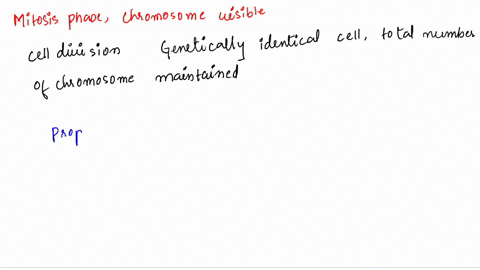 Mitosis phase, chromosome visible
cell division Genetically identical cell, total number
of chromosome maintained
Prop